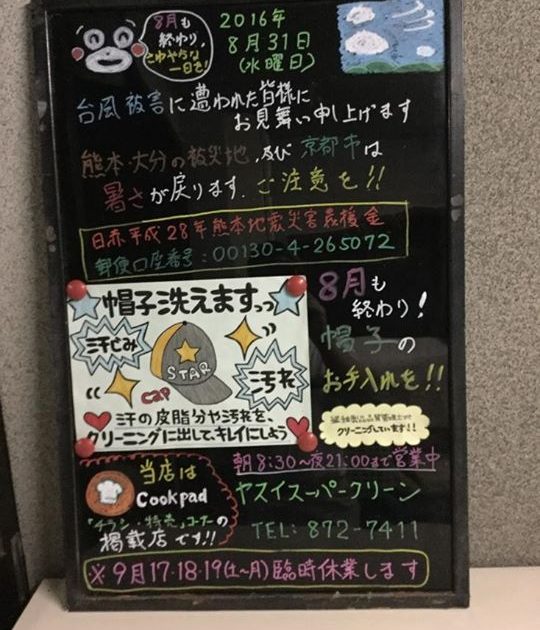 8月も
終わり。
さわやかな
一日を!
2016年
8月31日
(水曜日)
台風被害に遭われた皆様に
お見舞い申し上げます
熊本・大分の被災地、及び京都市は
暑さが戻ります。ご注意を!!
日赤平成28年熊本地震災害義援金
郵便口座番号:00130-4-265072
帽子洗えますっっ
汗じみ
STAR
CAP
汚れ
汗の皮脂分や汚れを、
クリーニングに出して、キレイにしよう
8月も
終わり!
帽子の
お手入れを!!
繊維製品品質管理士が
クリーニングしています!!
当店は
Cookpad
「チラシ・特売」コーナーの
掲載店です!!
朝8:30〜夜21:00まで営業中
ヤスイスーパークリーン
TEL: 872-7411
※9月17・18・19(土〜月)臨時休業します